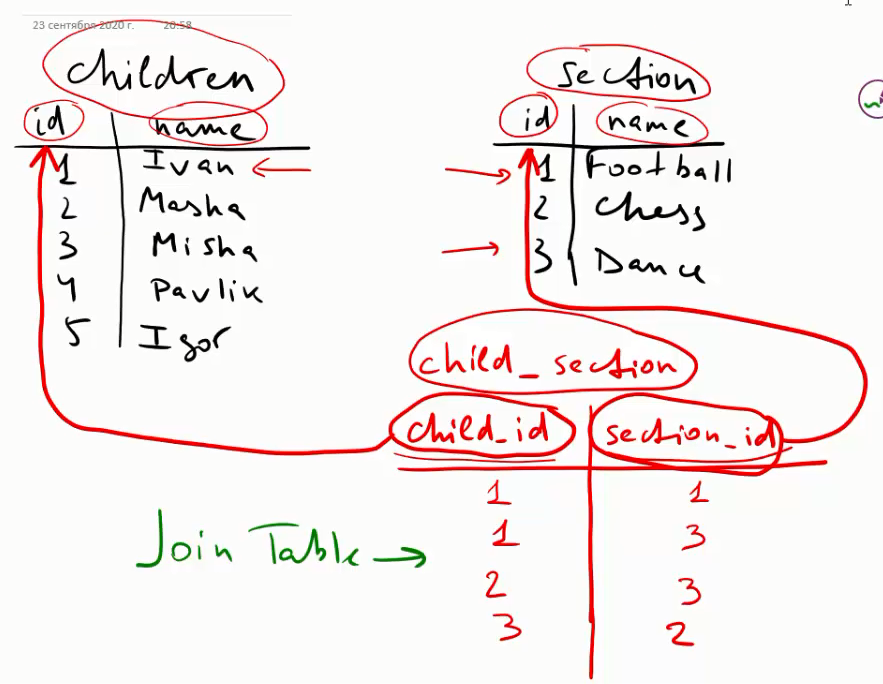 23 сентября 2020 г. 20:58
children
id name
1 Ivan
2 Masha
3 Misha
4 Pavlik
5 Igor
section
id name
1 Football
2 Chess
3 Dance
child_section
child_id section_id
1 1
1 3
2 3
3 2
Join Table